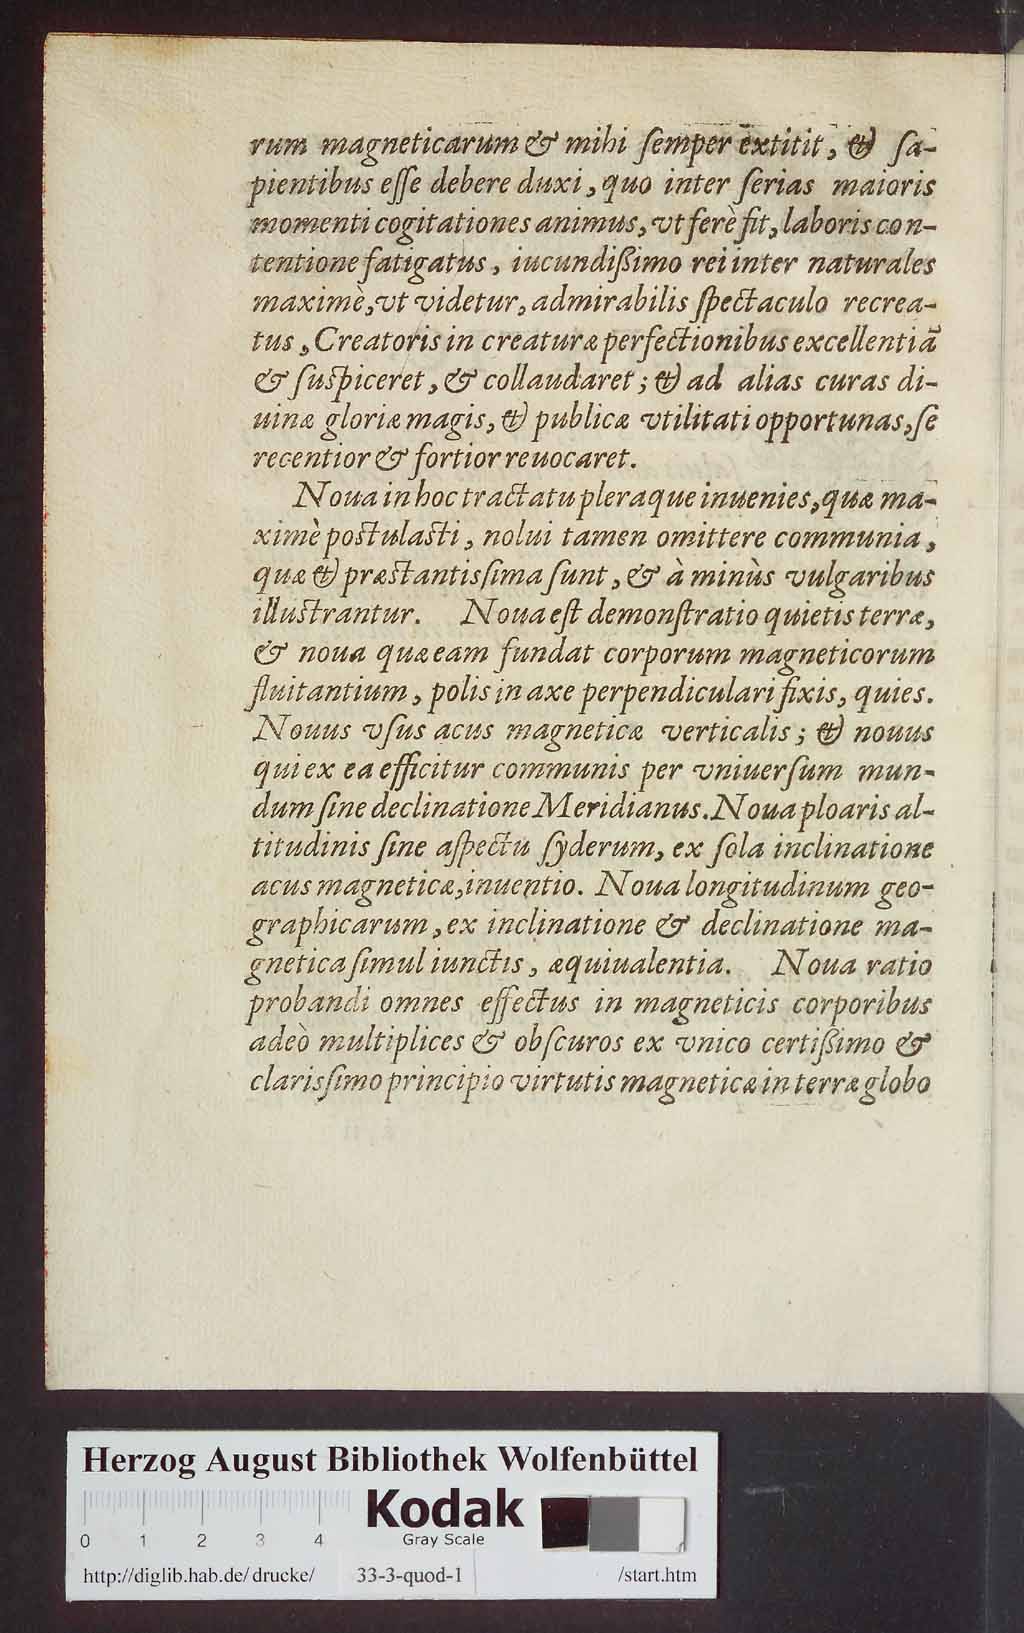 rum magneticarum & mihi ſemper extitit, & ſa-
pientibus eſſe debere duxi, quo inter ſerias maioris
momenti cogitationes animus, vt ferè fit, laboris con-
tentione fatigatus, iucundißimo rei inter naturales
maximè, vt videtur, admirabilis ſpectaculo recrea-
tus, Creatoris in creaturæ perfectionibus excellentiā
& ſuſpiceret, & collaudaret; & ad alias curas di-
uinæ gloriæ magis, & publicæ vtilitati opportunas, ſe
recentior & fortior reuocaret.
Noua in hoc tractatu pleraque inuenies, quæ ma-
ximè poſtulaſti, nolui tamen omittere communia,
quæ & præſtantisſima ſunt, & à minùs vulgaribus
illuſtrantur. Noua eſt demonſtratio quietis terræ,
& noua quæ eam fundat corporum magneticorum
fluitantium, polis in axe perpendiculari fixis, quies.
Nouus vſus acus magneticæ verticalis; & nouus
qui ex ea efficitur communis per vniuerſum mun-
dum ſine declinatione Meridianus. Noua ploaris al-
titudinis ſine aſpectu ſyderum, ex ſola inclinatione
acus magneticæ, inuentio. Noua longitudinum geo-
graphicarum, ex inclinatione & declinatione ma-
gnetica ſimul iunctis, æquiualentia. Noua ratio
probandi omnes effectus in magneticis corporibus
adeò multiplices & obſcuros ex vnico certißimo &
clarisſimo principio virtutis magneticæ in terræ globo
Herzog August Bibliothek Wolfenbüttel
0 1 2 3 4
Kodak
Gray Scale
http://diglib.hab.de/drucke/ 33-3-quod-1 /start.htm